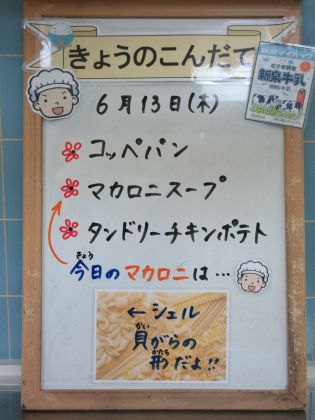 きょうのこんだて
6月13日(木)
コッペパン
マカロニスープ
タンドリーチキンポテト
きょう
今日のマカロニは…
←シェル
かい
貝がらの
かたち
形だよ!!
成分無調整
新泉牛乳